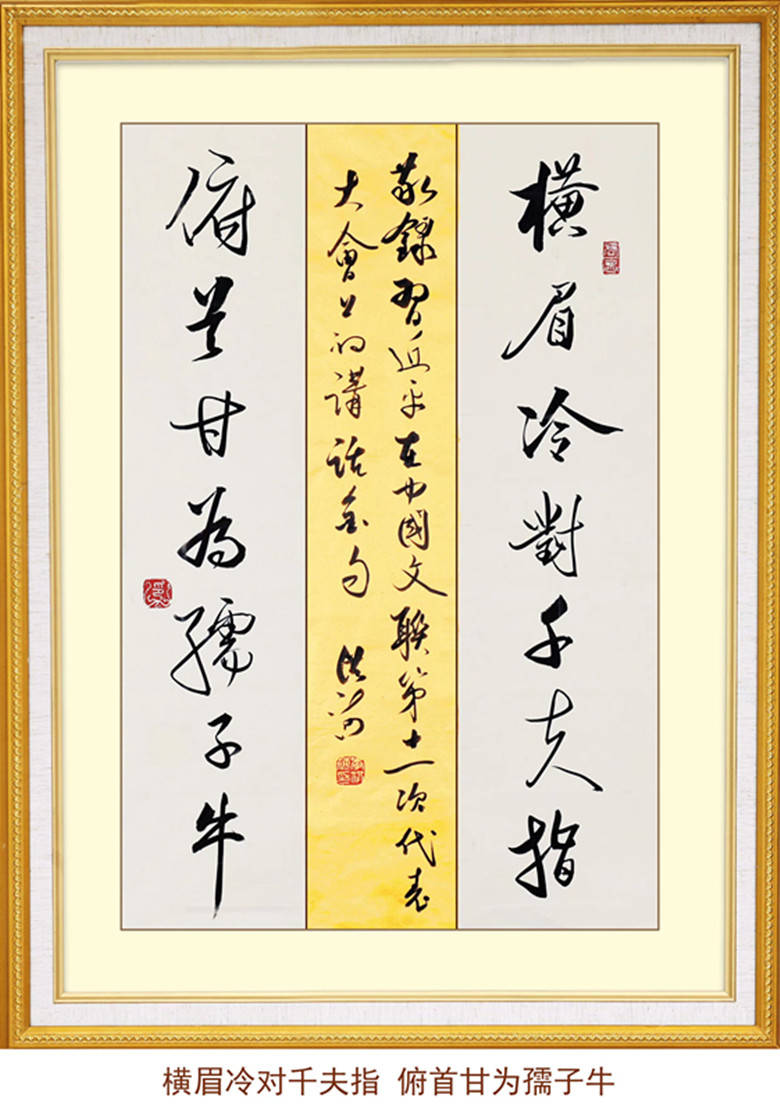 橫眉冷對千夫指
敬錄習近平在中國文聯第十一次代表
大會上的講話金句
俯首甘為孺子牛
横眉冷对千夫指 俯首甘为孺子牛